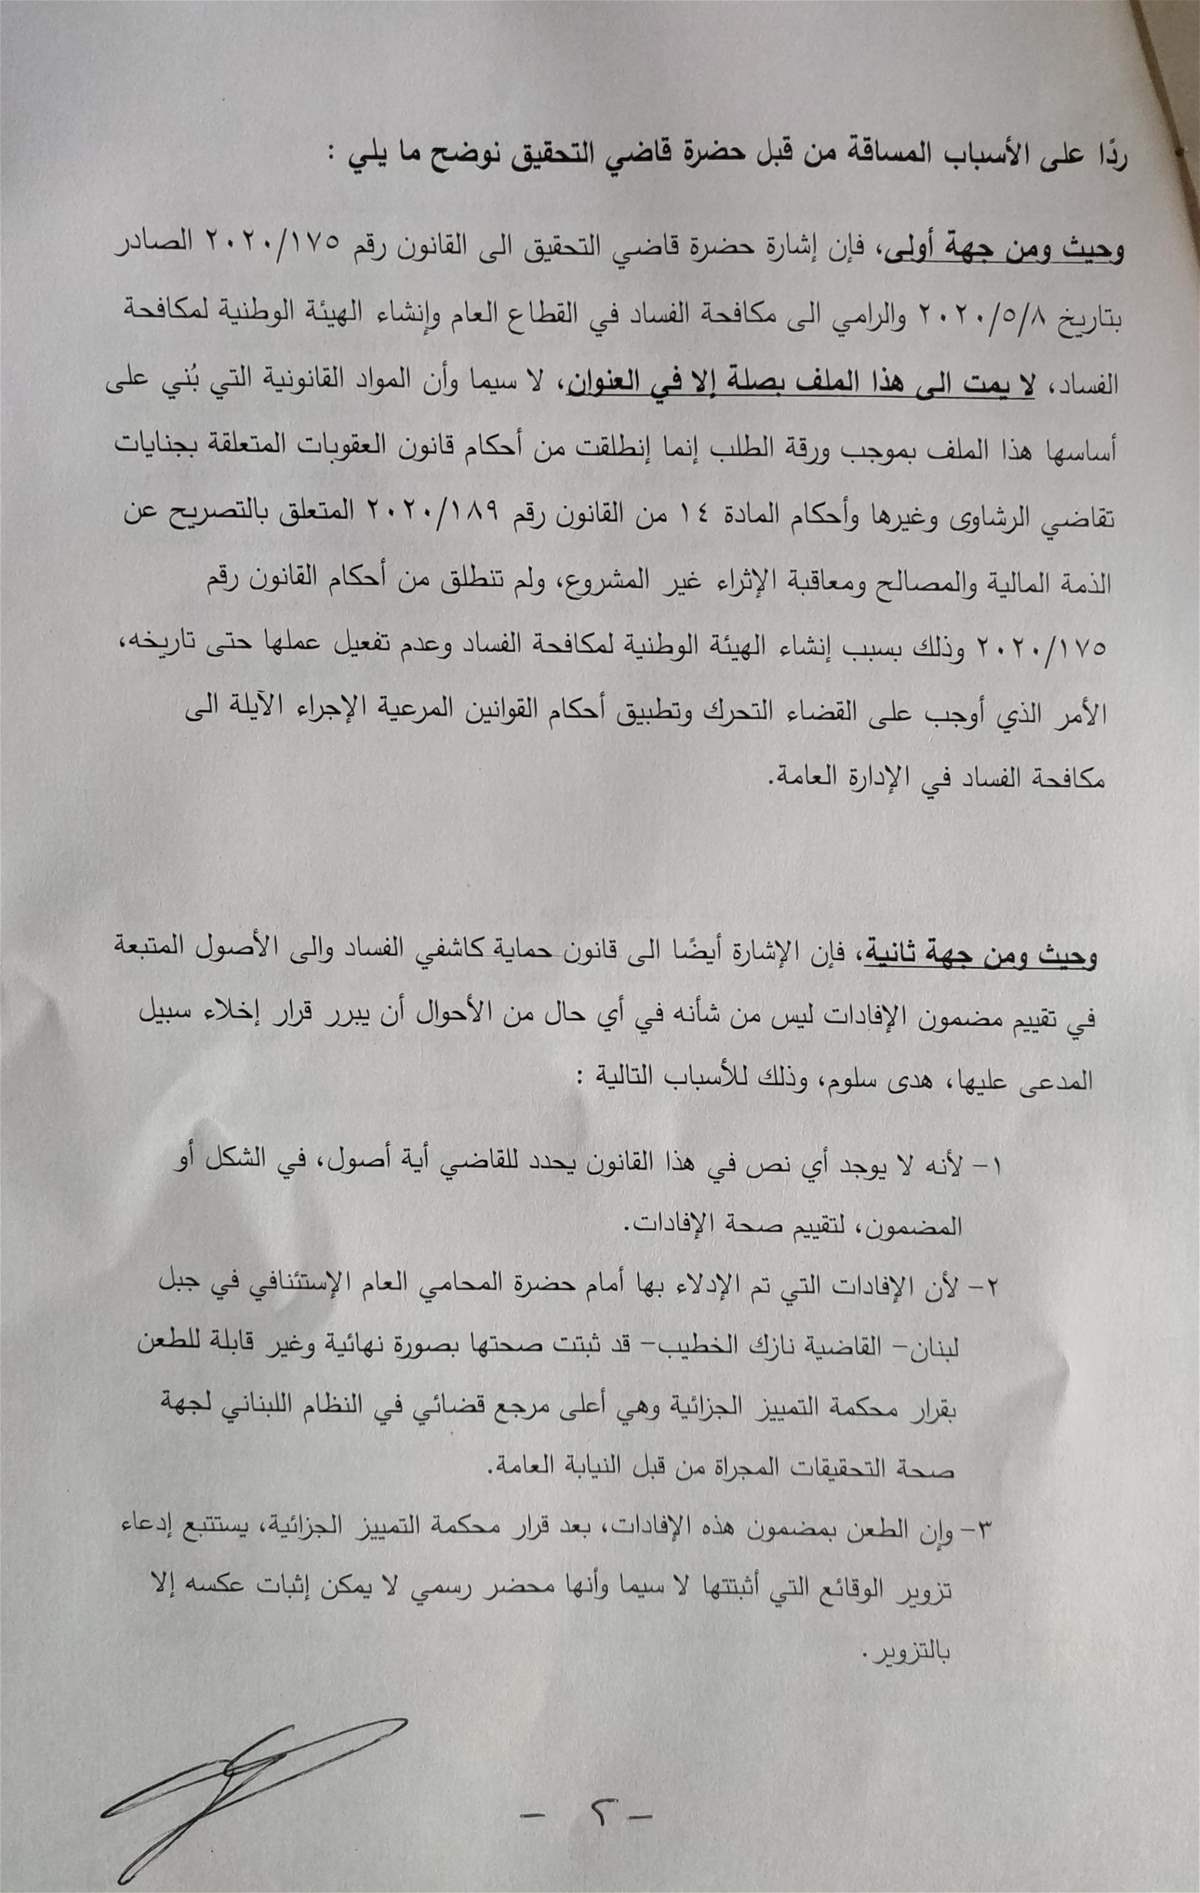 ردًا على الأسباب المساقة من قبل حضرة قاضي التحقيق نوضح ما يلي :
وحيث ومن جهة أولى، فإن إشارة حضرة قاضي التحقيق الى القانون رقم ٢٠٢٠/١٧٥ الصادر
بتاريخ ٢٠٢٠/٥/٨ والرامي الى مكافحة الفساد في القطاع العام وإنشاء الهيئة الوطنية لمكافحة
الفساد، لا يمت الى هذا الملف بصلة إلا في العنوان، لا سيما وأن المواد القانونية التي بُني على
أساسها هذا الملف بموجب ورقة الطلب إنما إنطلقت من أحكام قانون العقوبات المتعلقة بجنايات
تقاضي الرشاوى وغيرها وأحكام المادة ١٤ من القانون رقم ٢٠٢٠/١٨٩ المتعلق بالتصريح عن
الذمة المالية والمصالح ومعاقبة الإثراء غير المشروع، ولم تنطلق من أحكام القانون رقم
٢٠٢٠/١٧٥ وذلك بسبب إنشاء الهيئة الوطنية لمكافحة الفساد وعدم تفعيل عملها حتى تاريخه،
الأمر الذي أوجب على القضاء التحرك وتطبيق أحكام القوانين المرعية الإجراء الآيلة الى
مكافحة الفساد في الإدارة العامة.
وحيث ومن جهة ثانية، فإن الإشارة أيضًا الى قانون حماية كاشفي الفساد والى الأصول المتبعة
في تقييم مضمون الإفادات ليس من شأنه في أي حال من الأحوال أن يبرر قرار إخلاء سبيل
المدعى عليها، هدى سلوم، وذلك للأسباب التالية :
١- لأنه لا يوجد أي نص في هذا القانون يحدد للقاضي أية أصول، في الشكل أو
المضمون، لتقييم صحة الإفادات.
٢- لأن الإفادات التي تم الإدلاء بها أمام حضرة المحامي العام الإستئنافي في جبل
لبنان- القاضية نازك الخطيب- قد ثبتت صحتها بصورة نهائية وغير قابلة للطعن
بقرار محكمة التمييز الجزائية وهي أعلى مرجع قضائي في النظام اللبناني لجهة
صحة التحقيقات المجراة من قبل النيابة العامة.
٣- وإن الطعن بمضمون هذه الإفادات، بعد قرار محكمة التمييز الجزائية، يستتبع إدعاء
تزوير الوقائع التي أثبتتها لا سيما وأنها محضر رسمي لا يمكن إثبات عكسه إلا
بالتزوير.
- ٢ -